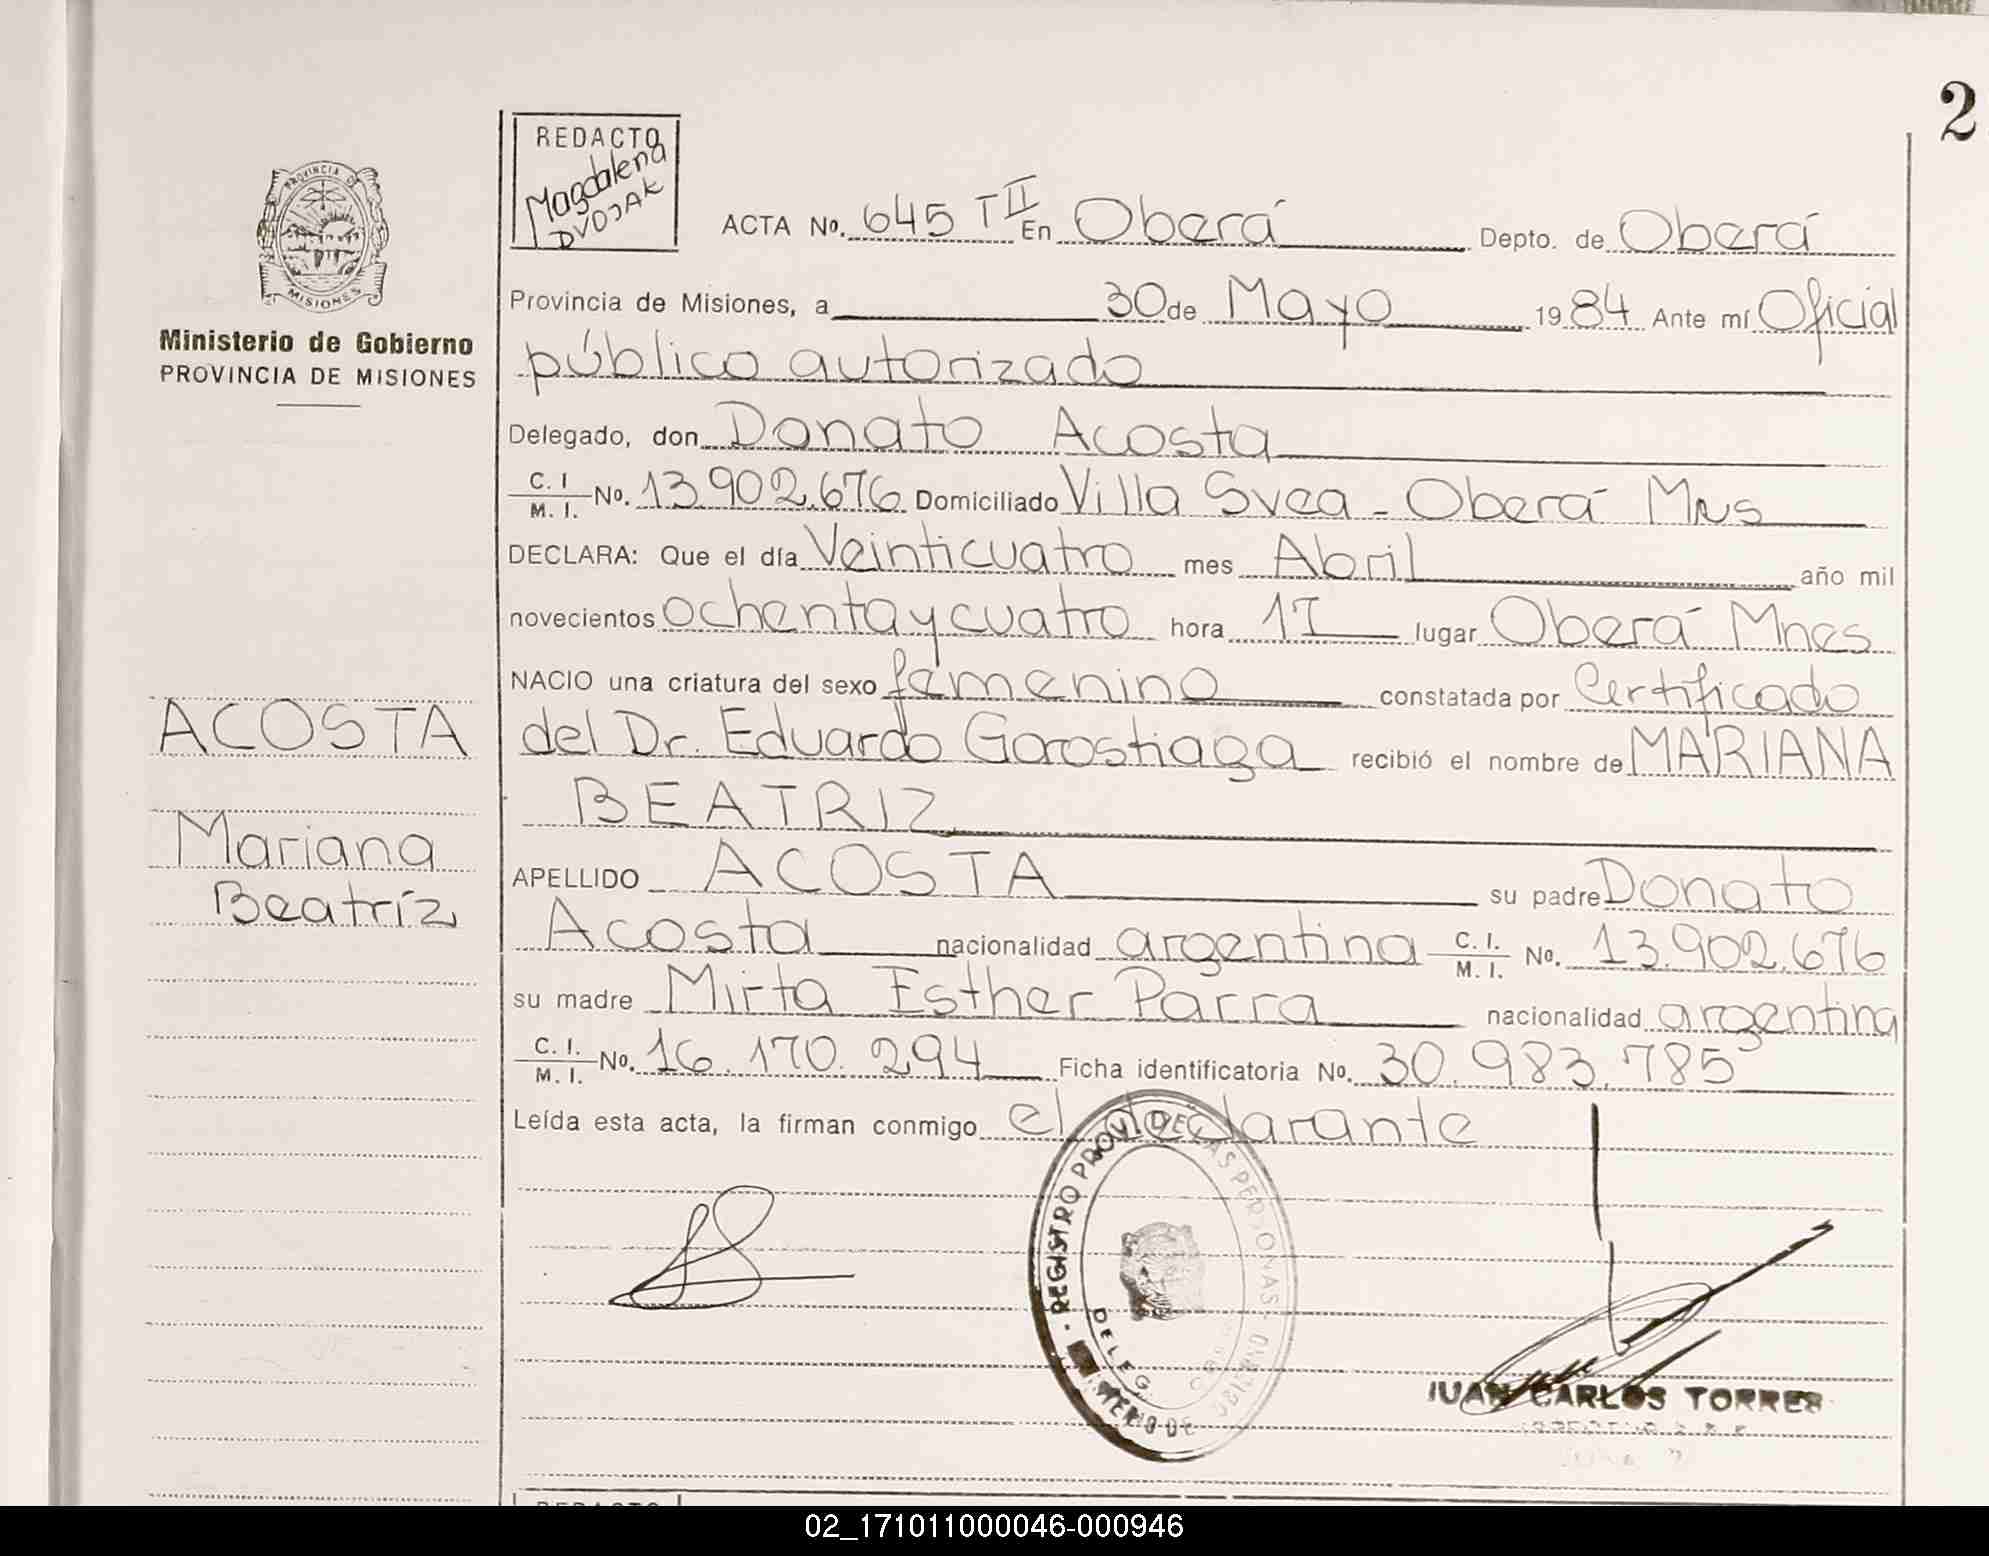 2
REDACTO
Magdalena
DVOJAK
PROVINCIA DE
MISIONES
Ministerio de Gobierno
PROVINCIA DE MISIONES
ACTA No. 645 T II En Oberá Depto. de Oberá
Provincia de Misiones, a 30 de Mayo 1984 Ante mí Oficial
público autorizado
Delegado, don Donato Acosta
C. I / M. I. No. 13.902.676 Domiciliado Villa Svea - Oberá Mns
DECLARA: Que el día Veinticuatro mes Abril año mil
novecientos ochenta y cuatro hora 17 lugar Oberá Mnes
NACIO una criatura del sexo femenino constatada por Certificado
del Dr. Eduardo Gorostiaga recibió el nombre de MARIANA
BEATRIZ
APELLIDO ACOSTA su padre Donato
Acosta nacionalidad argentina C. I. / M. I. No. 13.902.676
su madre Mirta Esther Parra nacionalidad argentina
C. I. / M. I. No. 16.170.294 Ficha identificatoria No. 30.983.785
Leída esta acta, la firman conmigo el declarante
ACOSTA
Mariana
Beatríz
REGISTRO PROV. DE LAS PERSONAS
DELEG.
JUAN CARLOS TORRES
REDACTO
02_171011000046-000946